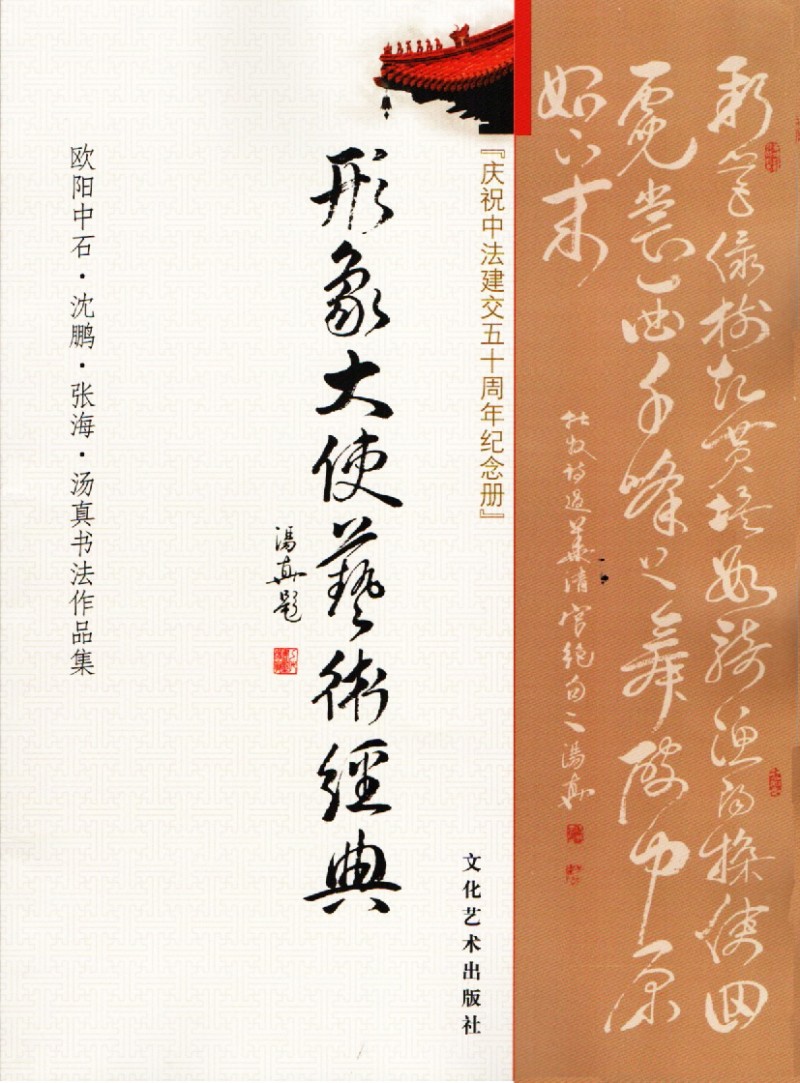 新豐綠樹起黄埃數騎漁陽探使回
霓裳一曲千峰上舞破中原
始下來
杜牧詩過華清宮絕句之二湯真
『庆祝中法建交五十周年纪念册』
形象大使藝術經典
湯真题
欧阳中石·沈鹏·张海·汤真书法作品集
文化艺术出版社